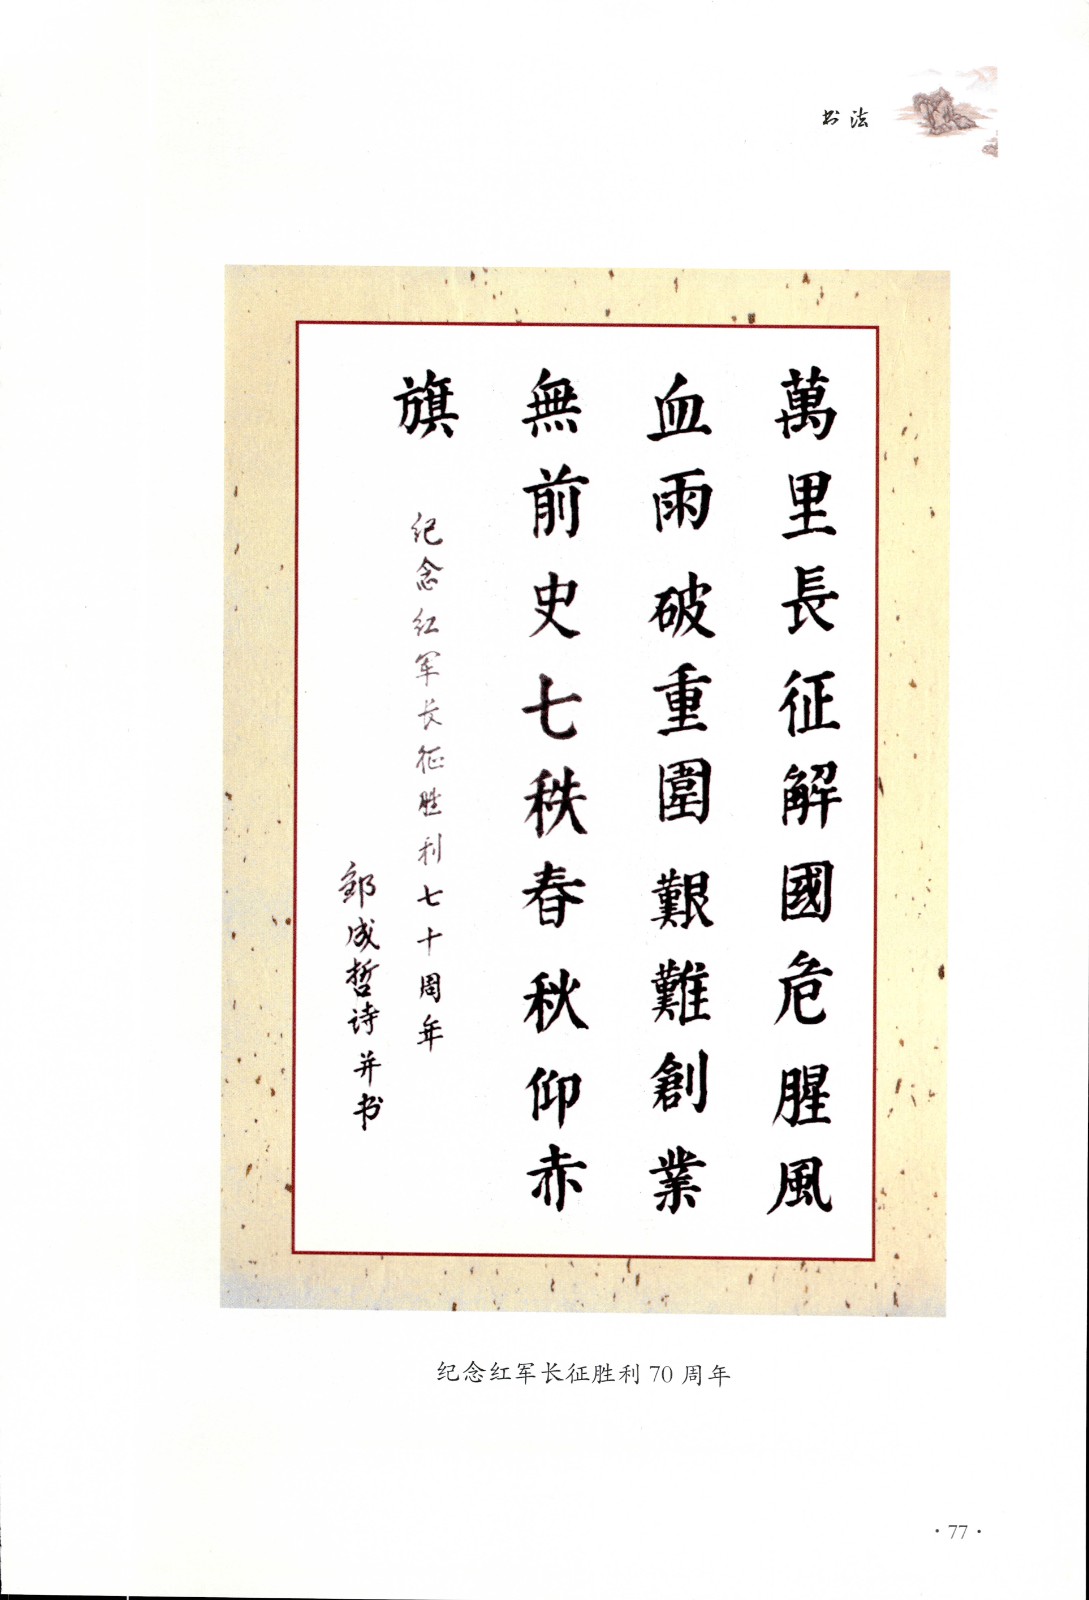 书法
萬里長征解國危腥風
血雨破重圍艱難創業
無前史七秩春秋仰赤
旗
纪念红军长征胜利七十周年
邹成哲诗并书
纪念红军长征胜利70周年
·77·